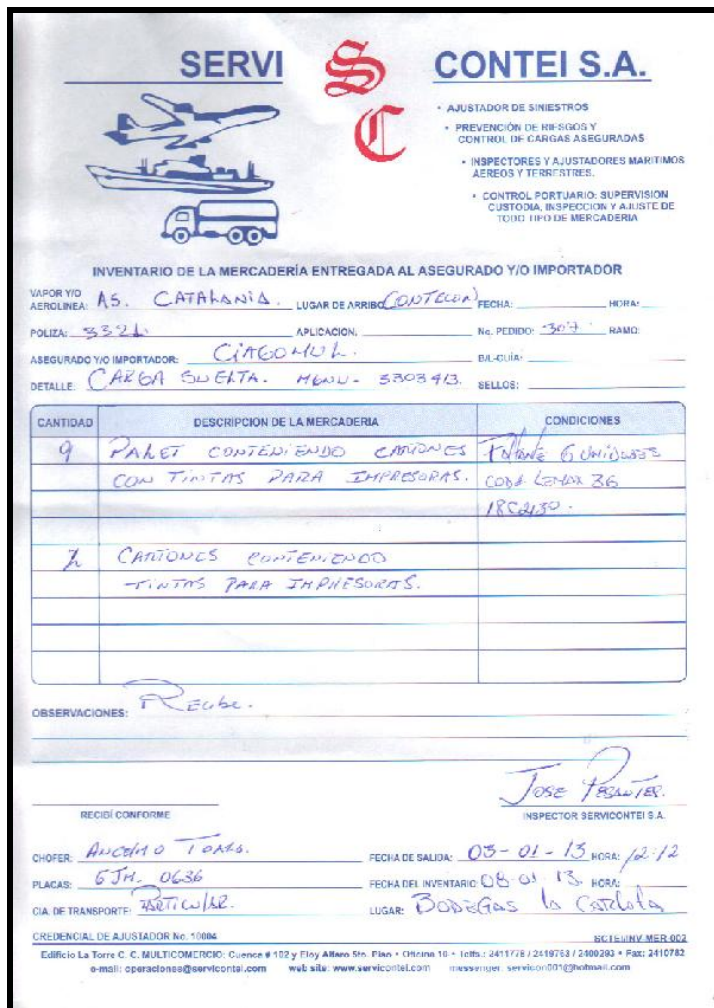 SERVI SC CONTEI S.A.
• AJUSTADOR DE SINIESTROS
• PREVENCIÓN DE RIESGOS Y
CONTROL DE CARGAS ASEGURADAS
• INSPECTORES Y AJUSTADORES MARITIMOS
AEREOS Y TERRESTRES.
• CONTROL PORTUARIO: SUPERVISION
CUSTODIA, INSPECCION Y AJUSTE DE
TODO TIPO DE MERCADERIA
INVENTARIO DE LA MERCADERÍA ENTREGADA AL ASEGURADO Y/O IMPORTADOR
VAPOR Y/O
AEROLINEA: AS. CATALANIA. LUGAR DE ARRIBO: CONTECON FECHA: HORA:
POLIZA: 3321. APLICACION. No. PEDIDO: 307 RAMO:
ASEGURADO Y/O IMPORTADOR: B/L-GUÍA:
DETALLE: CARGA SUELTA. 3303413. SELLOS:
CANTIDAD DESCRIPCION DE LA MERCADERIA CONDICIONES
9 PALET CONTENIENDO CARTONES Faltante 6 UNIDADES
CON TINTAS PARA IMPRESORAS. 36
18C2130.
2 CARTONES CONTENIENDO
TINTAS PARA IMPRESORAS.
OBSERVACIONES: Recibe.
JOSE
RECIBÍ CONFORME INSPECTOR SERVICONTEI S.A.
CHOFER: FECHA DE SALIDA: 03-01-13 HORA: 12:12
PLACAS: 0636 FECHA DEL INVENTARIO: 08.01.13. HORA:
CIA. DE TRANSPORTE: PARTICULAR. LUGAR: BODEGAS la
CREDENCIAL DE AJUSTADOR No. 10004 SCTEI/INV-MER-002
Edificio La Torre C. C. MULTICOMERCIO: Cuenca # 102 y Eloy Alfaro 5to. Piso • Oficina 10 • Telfs.: 2411778 / 2419763 / 2400293 • Fax: 2410782
e-mail: operaciones@servicontei.com web site: www.servicontei.com messenger: servicon001@hotmail.com